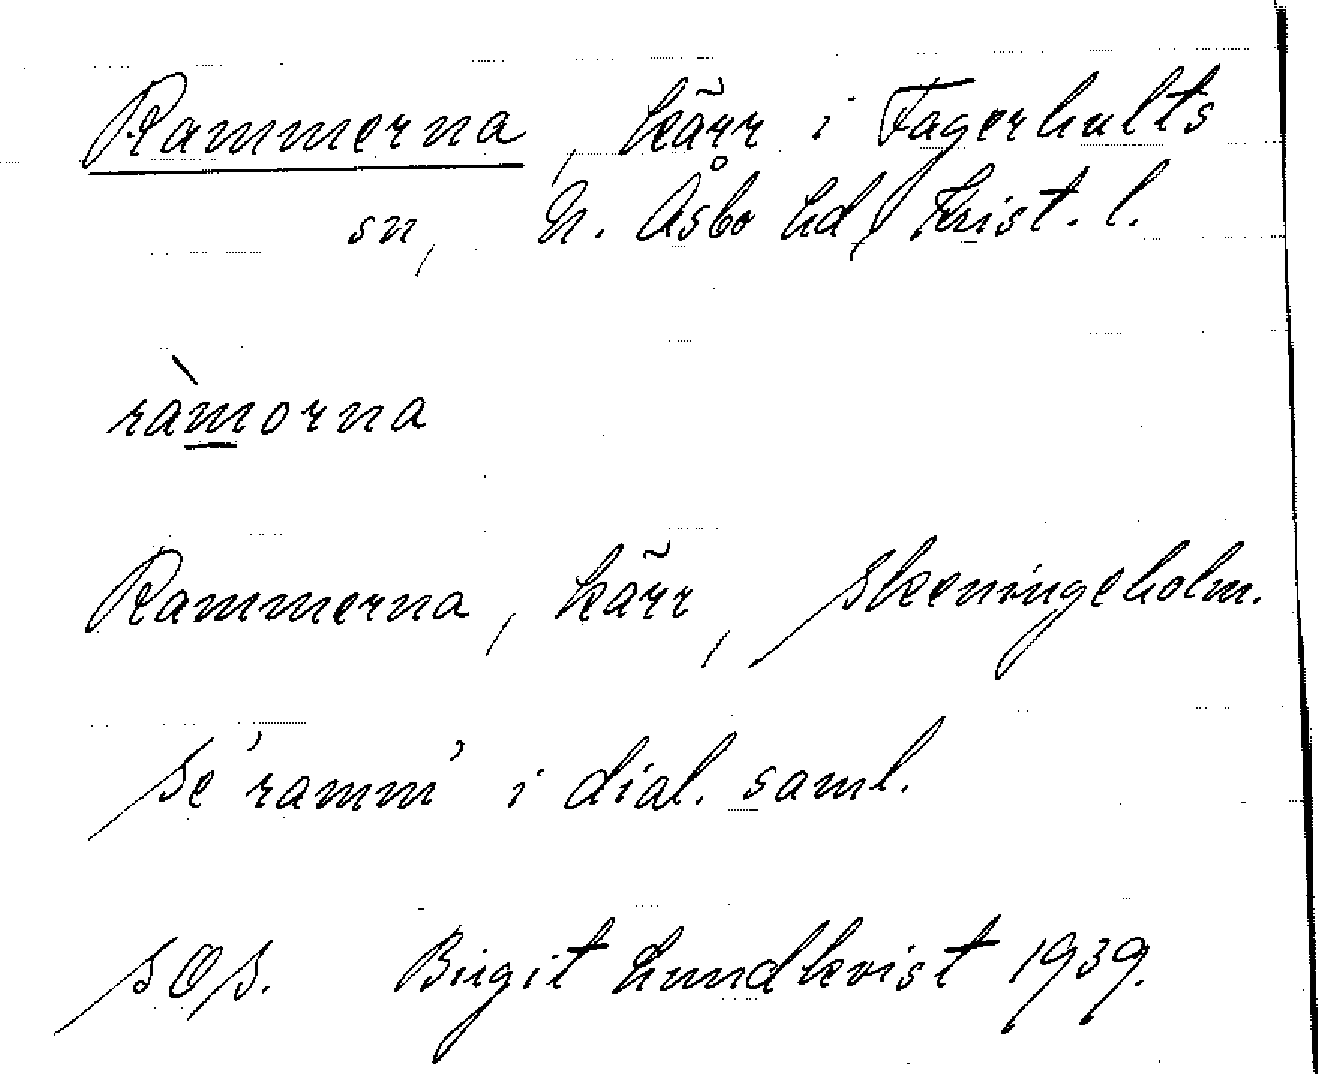 Rammerna, kärr i Fagerhults
sn, N. Åsbo hd, Krist. l.
ràmorna
Rammerna, kärr, Skeningeholm.
Se 'ramm' i dial. saml.
SOS. Birgit Lundkvist 1939.